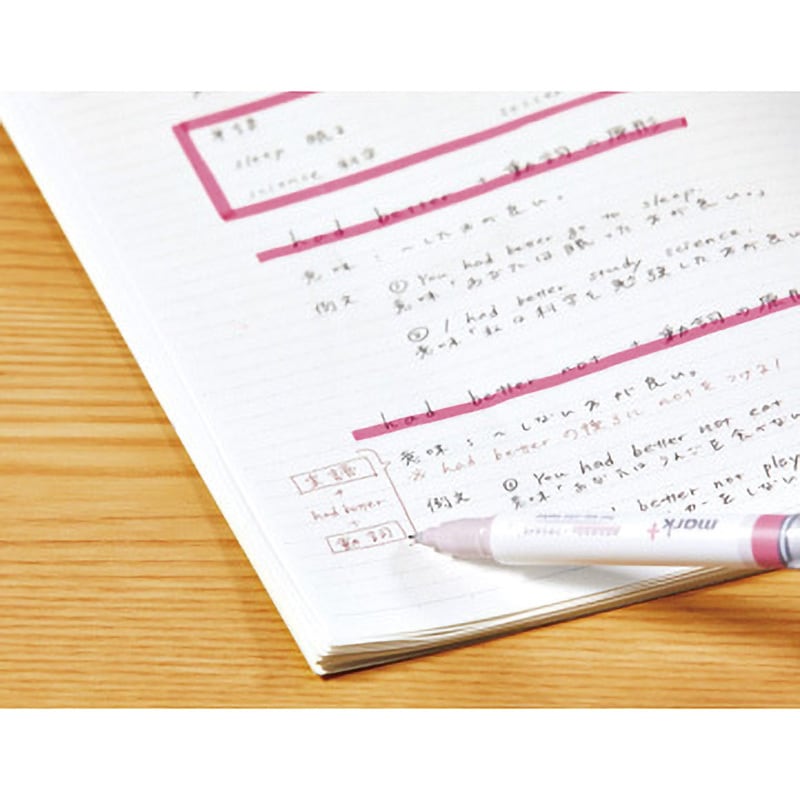 単語
sleep 眠る
science 科学
had better + 動詞の原形
意味:〜した方が良い。
例文 ① You had better go to sleep.
意味:あなたは眠った方が良い。
② I had better study science.
意味:私は科学を勉強した方が良い
had better not + 動詞の原形
意味:〜しない方が良い。
※ had better の後ろに not をつける!
例文 ① You had better not eat
意味:あなたは を食べない
better not play
をしない
主語
+
had better
+
動詞
mark+